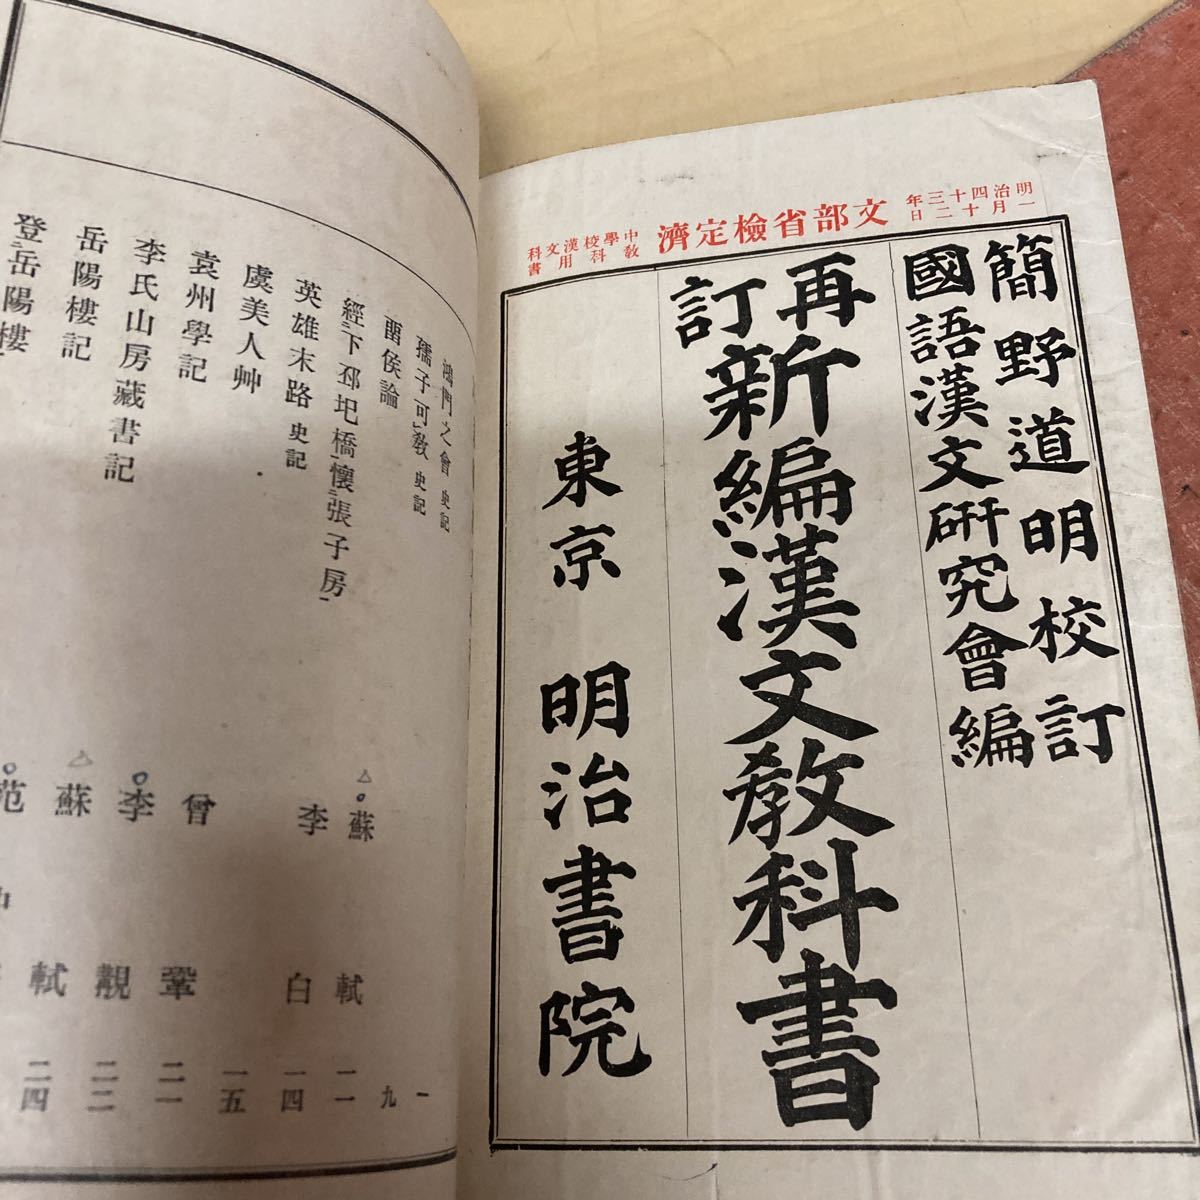 明治四十三年
一月十二日
文部省檢定濟
中學校漢文科
教科用書
簡野道明校訂
國語漢文研究會編
再訂新編漢文教科書
東京 明治書院
鴻門之會 史記 一
孺子可教 史記 九
畱侯論 蘇軾 一一
經下邳圯橋懷張子房 李白 一四
英雄末路 史記 一五
虞美人艸 曾鞏 二一
袁州學記 李覯 二二
李氏山房藏書記 蘇軾 二四
岳陽樓記 范
登岳陽樓